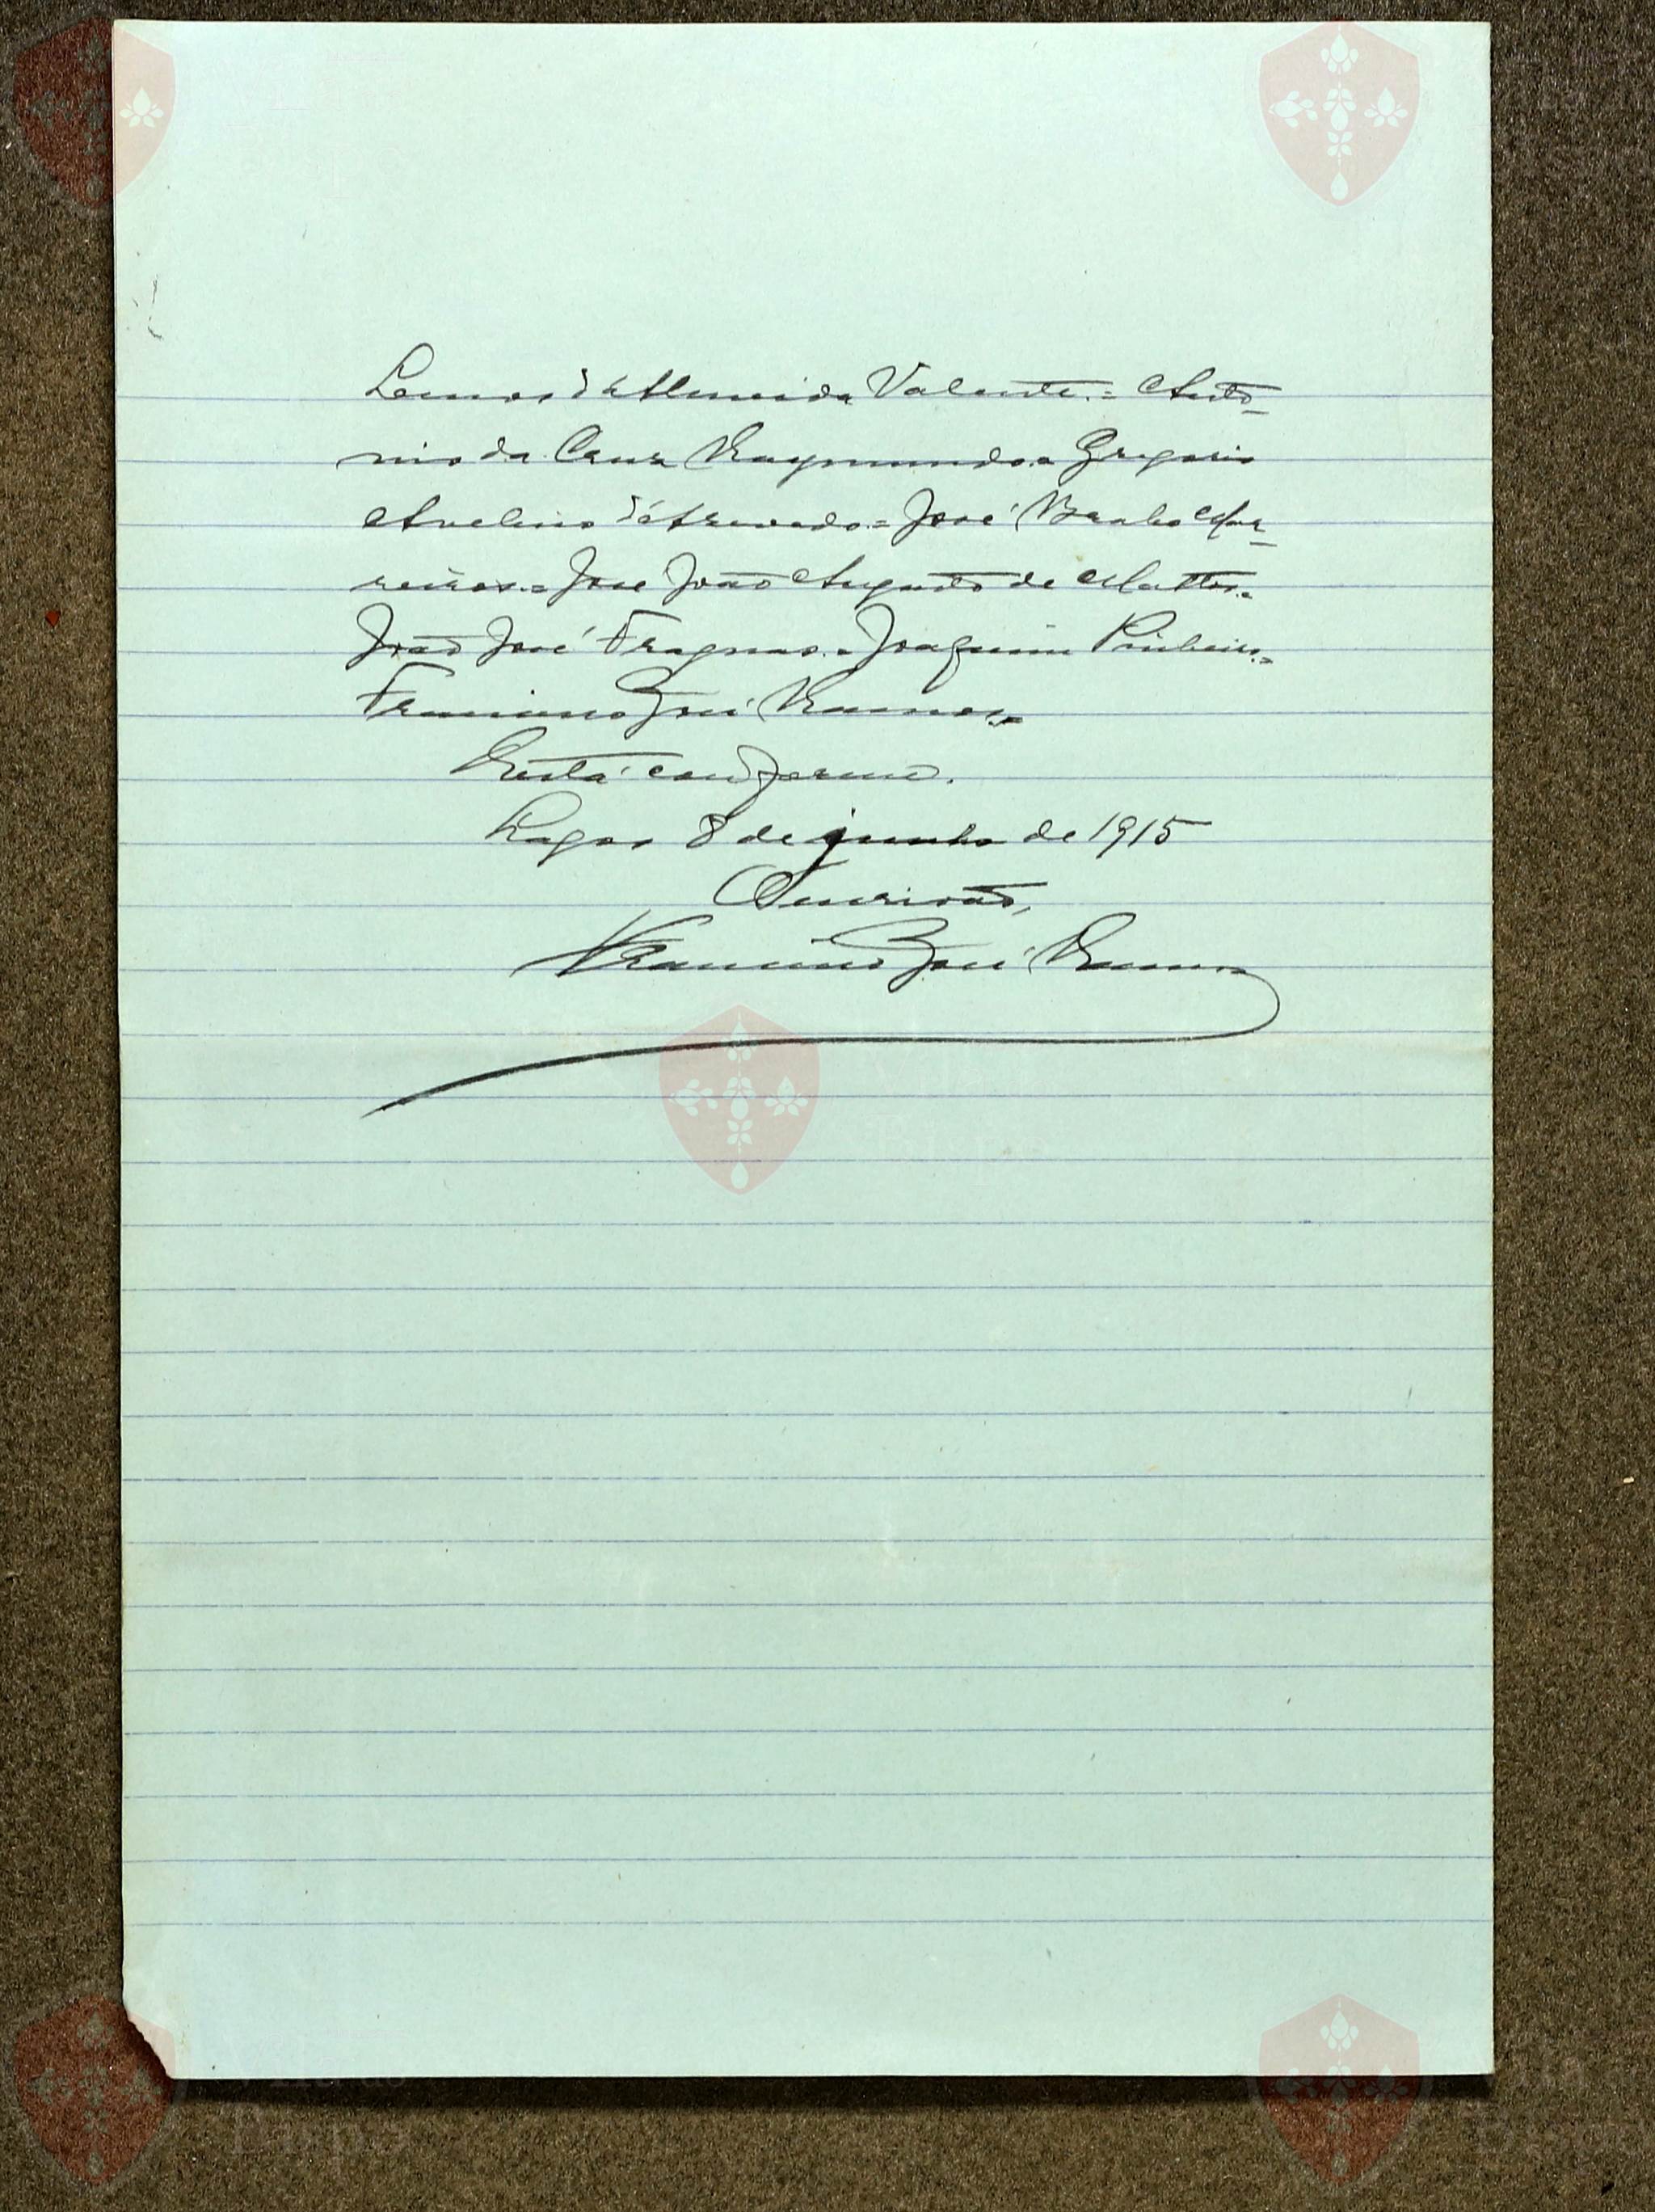 Lemos d'Almeida Valente.= Antó-
nio da Cruz Raymundo.= Gregorio
Avelino d'Azevedo.= José Brabo Mar-
reiros.= José João Augusto de Mattos.=
João José Fragoso.= Joaquim Pinheiro.=
Francisco José Ramos.=
Está conforme.
Lagos 8 de junho de 1915
O escrivão,
Francisco José Ramos
Vila
Bispo